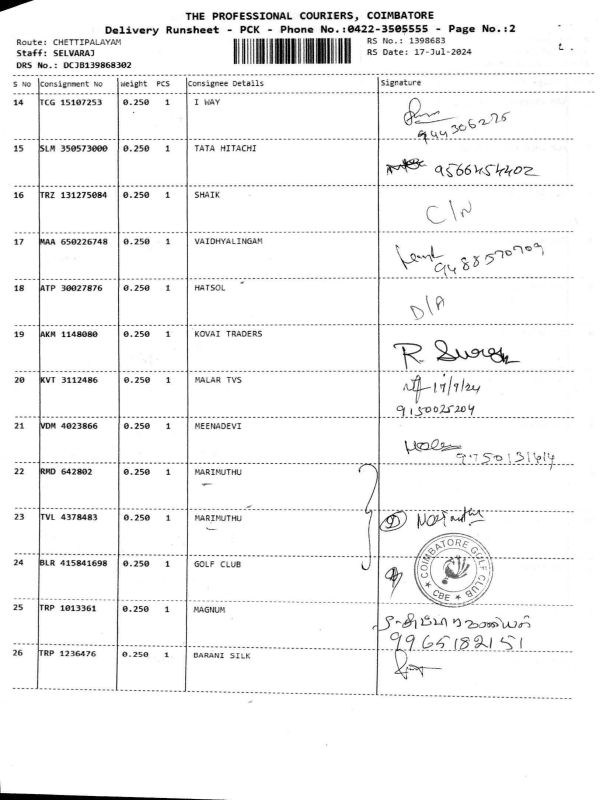 THE PROFESSIONAL COURIERS, COIMBATORE
Delivery Runsheet - PCK - Phone No.:0422-3505555 - Page No.:2
Route: CHETTIPALAYAM RS No.: 1398683
Staff: SELVARAJ RS Date: 17-Jul-2024
DRS No.: DCJB139868302
S No Consignment No Weight PCS Consignee Details Signature
14 TCG 15107253 0.250 1 I WAY
944306275
15 SLM 350573000 0.250 1 TATA HITACHI
9566454402
16 TRZ 131275084 0.250 1 SHAIK
C/N
17 MAA 650226748 0.250 1 VAIDHYALINGAM
9488570709
18 ATP 30027876 0.250 1 HATSOL
D/A
19 AKM 1148080 0.250 1 KOVAI TRADERS
R.
20 KVT 3112486 0.250 1 MALAR TVS
17/7/24
9150025204
21 VDM 4023866 0.250 1 MEENADEVI
22 RMD 642802 0.250 1 MARIMUTHU
23 TVL 4378483 0.250 1 MARIMUTHU
24 BLR 415841698 0.250 1 GOLF CLUB
COIMBATORE GOLF CLUB
CBE
25 TRP 1013361 0.250 1 MAGNUM
9965182151
26 TRP 1236476 0.250 1 BARANI SILK